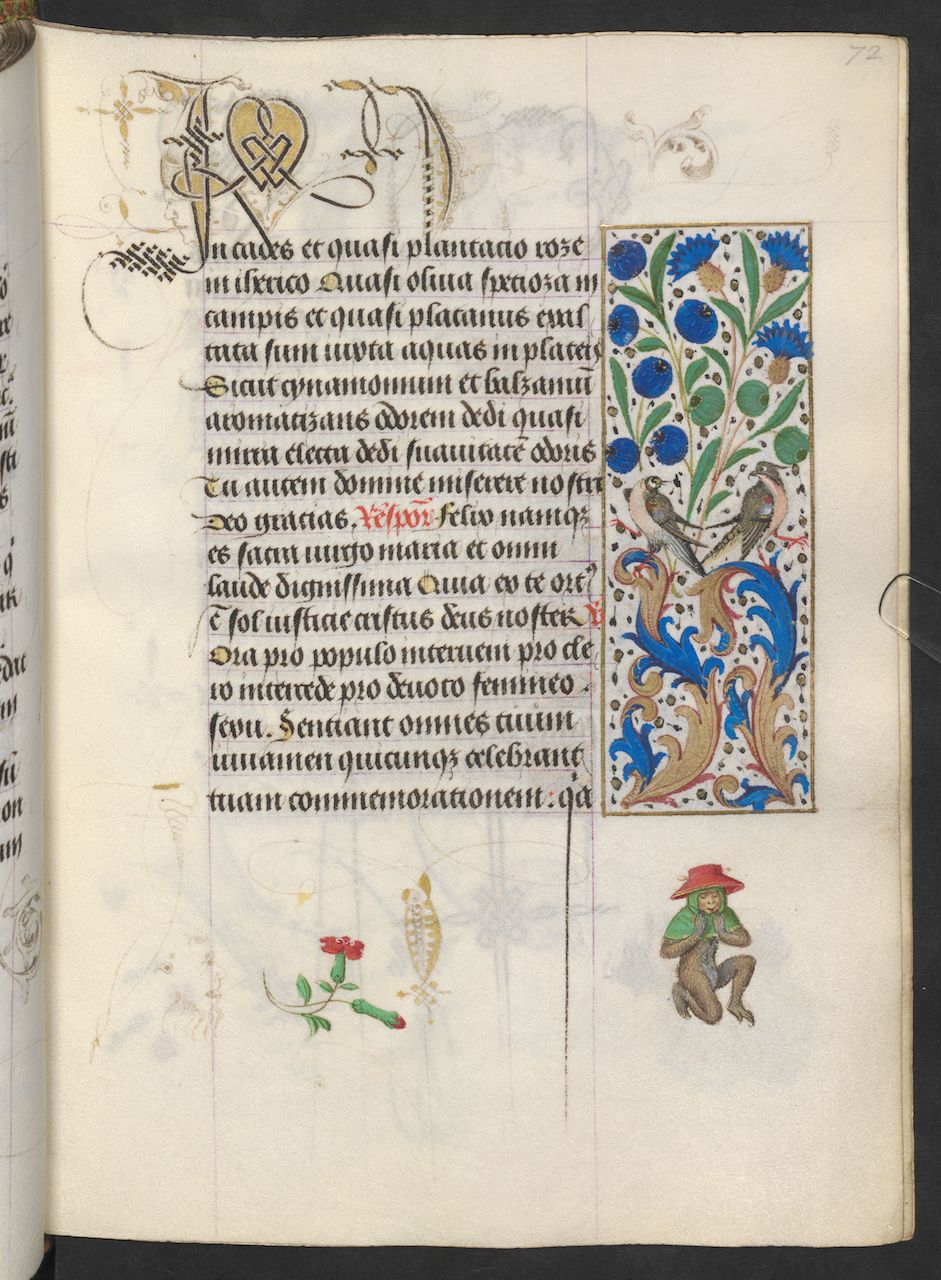 72
In cades et quasi plantacio roze
in iherico Quasi oliua specioza in
campis et quasi platanus exal
tata sum iuxta aquas in plateis
Sicut cynamomum et balzamū
aromatizans odorem dedi quasi
mirra electa dedi suauitatē odoris
Tu autem domine miserere nostri
Deo gracias. Respoř Felix namqʒ
es sacra uirgo maria et omni
laude dignissima Quia ex te ortꝰ
ē sol iusticie cristus deus noster
Ora pro populo interueni pro cle
ro intercede pro deuoto femineo
sexu. Sentiant omnes tuum
iuuamen quicunqʒ celebrant
tuam commemorationem: qⁱa